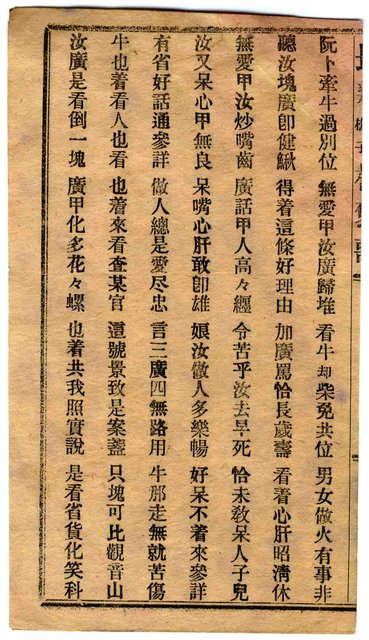 阮卜牽牛過別位 無愛甲汝廣歸堆 看牛却柴免共位 男女做火有事非
聽汝塊廣卽健鰍 得着這條好理由 加廣罵恰長歲壽 看着心肝昭淸休
無愛甲汝炒嘴齒 廣話甲人高々纒 令苦乎汝去早死 恰未敎呆人子兒
汝又呆心甲無良 呆嘴心肝敢卽雄 娘汝做人多樂暢 好呆不着來參詳
有省好話通參詳 做人總是愛尽忠 言三廣四無路用 牛那走無就苦傷
牛也着看人也看 也著來看查某官 這號景致是案盞 只塊可比觀音山
汝廣是看倒一塊 廣甲化多花々螺 也着共我照實說 是看省貨化笑科